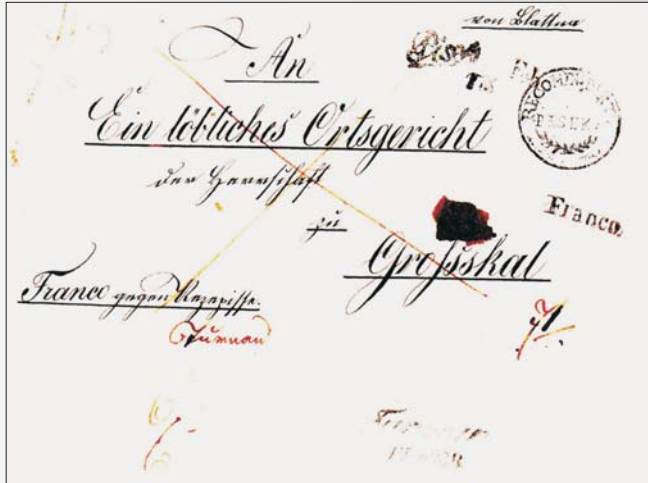 von Blattna
An
Ein löbliches Ortsgericht
der Herrschaft
zu
Grossskal
Franco gegen Rezepisse.
Turnau
RECOMMANDIRT
PISEK
Franco.